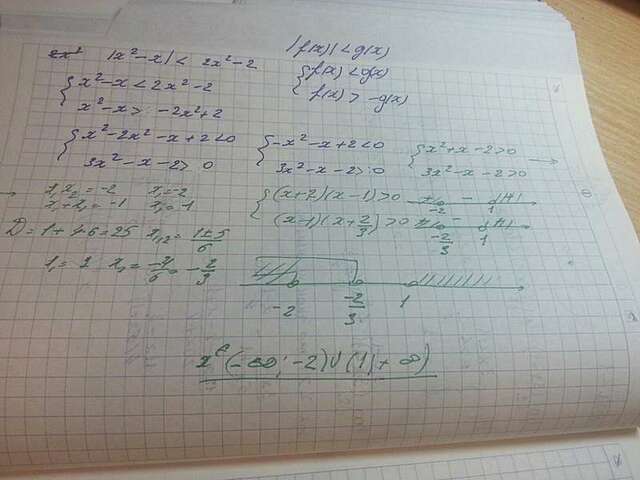 |x²-x| < 2x²-2
|f(x)| < g(x)
{x²-x < 2x²-2
x²-x > -2x²+2
{f(x) < g(x)
f(x) > -g(x)
{x²-2x²-x+2<0
3x²-x-2>0
{-x²-x+2<0
3x²-x-2>0
{x²+x-2>0
3x²-x-2>0 →
→ x₁x₂=-2 x₁=-2
x₁+x₂=-1
{(x+2)(x-1)>0
(x-1)(x+2/3)>0
+ - +
-2 1
+ - +
-2/3 1
D=1+4·6=25 x₁,₂=1±5/6
x₁=1 x₂=-4/6=-2/3
-2 -2/3 1
x∈(-∞;-2)∪(1;+∞)